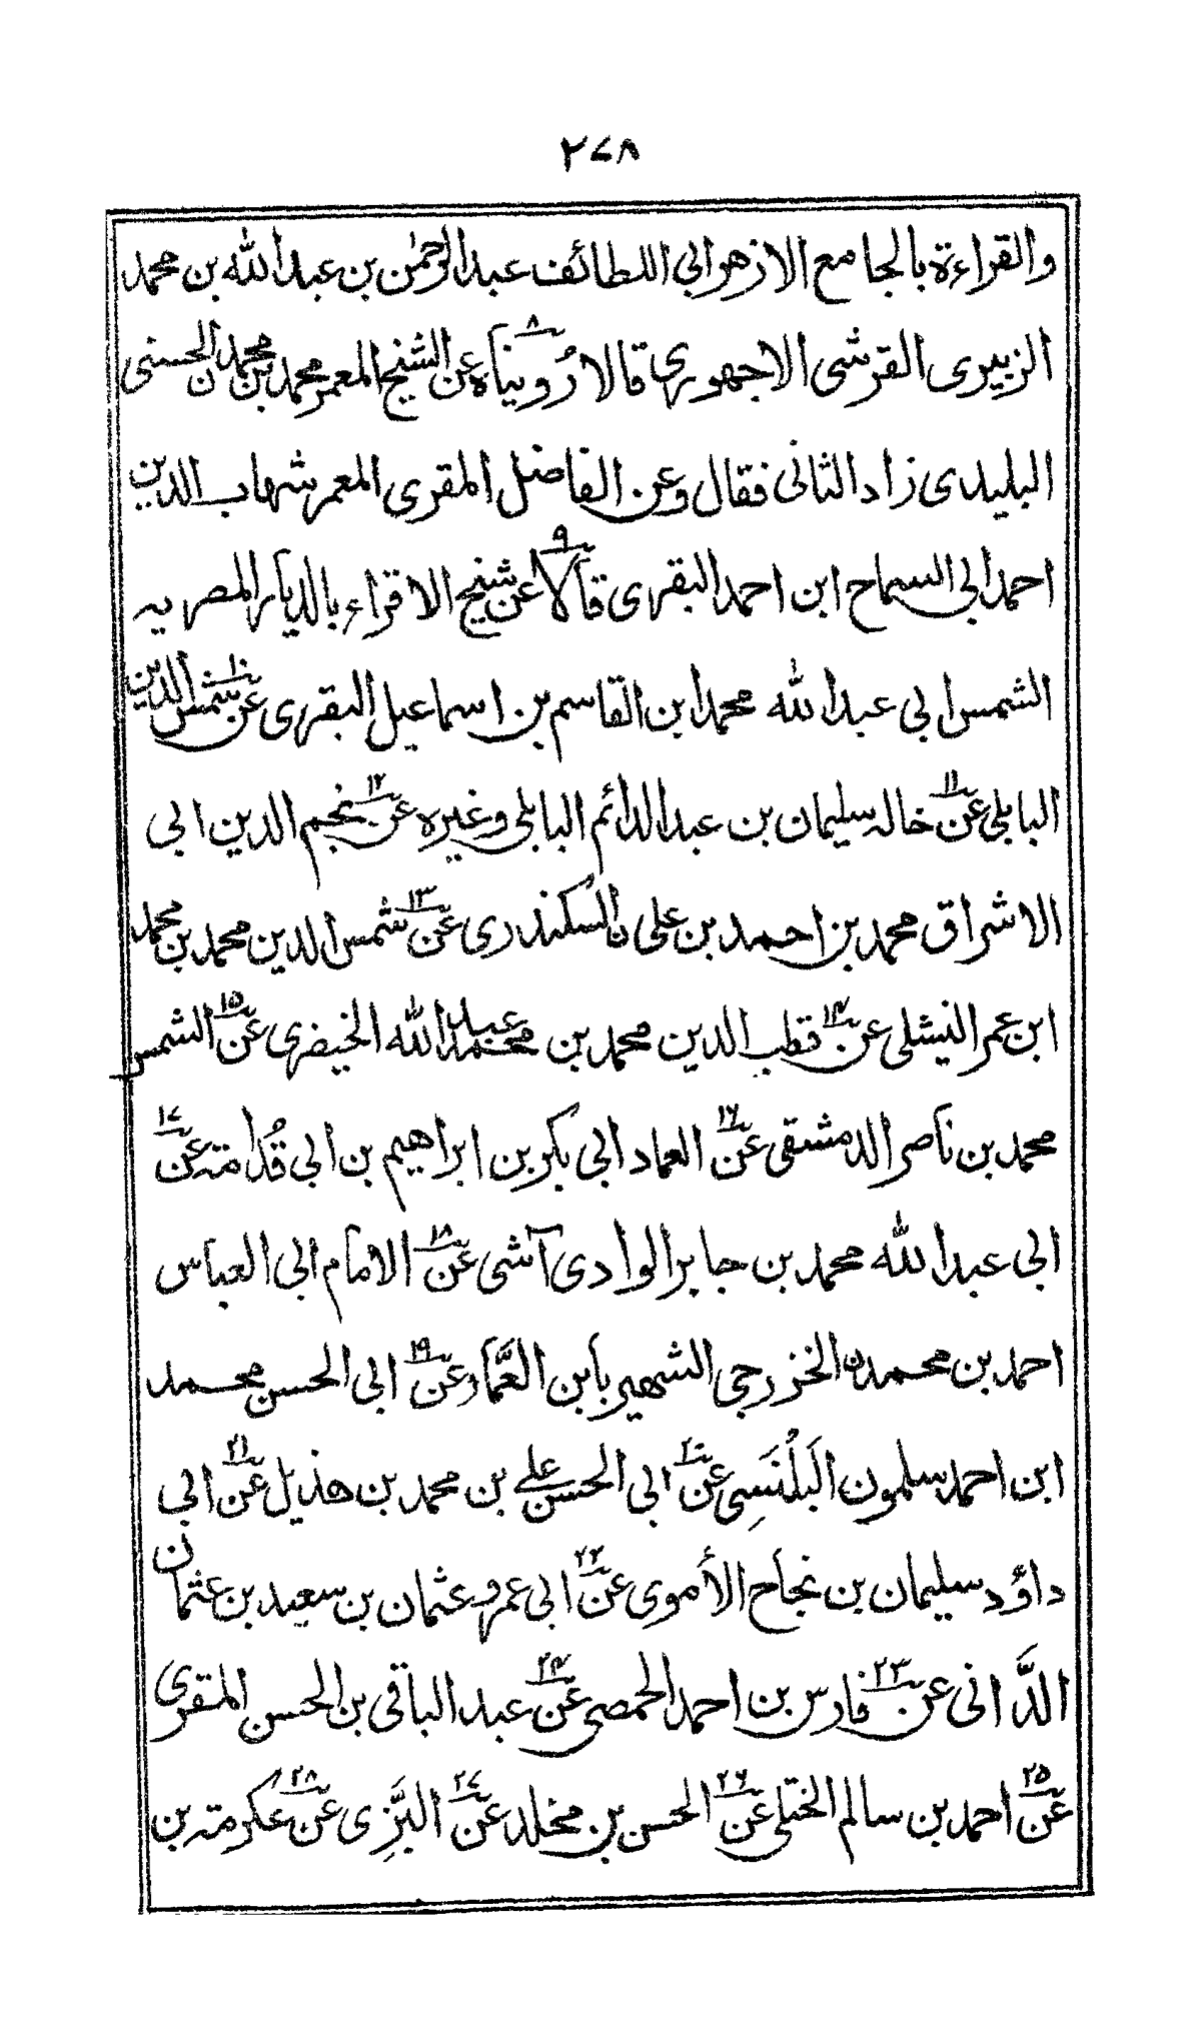 ٢٧٨
والقراءة بالجامع الازهر ابی اللطائف عبد الرحمٰن بن عبد الله بن محمد
الزبیری القرشی الاجهوری قالا رُویناه ٨ عن الشیخ المعمر محمد بن محمد ن الحسنی
البلیدی زاد الثانی فقال وعن الفاضل المقری المعمر شهاب الدین
احمد ابی السماح ابن احمد البقری قالا ٩ عن شیخ الاقراء بالدیار المصریه
الشمس ابی عبد الله محمد ابن القاسم بن اسماعیل البقری ١٠ عن شمس الدین
البابلی ١١ عن خاله سلیمان بن عبد الدائم البابلی وغیره ١٢ عن نجم الدین ابی
الاشراق محمد بن احمد بن علی ن السکندری ١٣ عن شمس الدین محمد بن محمد
ابن عمر النیشلی ١٤ عن قطب الدین محمد بن محمد عبد الله الخیضری ١٥ عن الشمس
محمد بن ناصر الدمشقی ١٦ عن العماد ابی بکر بن ابراهیم بن ابی قُدامته ١٧ عن
ابی عبد الله محمد بن جابر الوادی آشی ١٨ عن الامام ابی العباس
احمد بن محمد ن الخزرجی الشهیر بابن العَمَّاد ١٩ عن ابی الحسن محمد
ابن احمد سلمون البَلُنَسِی ٢٠ عن ابی الحسن علی بن محمد بن هذیل ٢١ عن ابی
داؤد سلیمان بن نجاح الأموی ٢٢ عن ابی عمرو عثمان بن سعید بن عثمان
الدَّانی ٢٣ عن فارس بن احمد الحمصی ٢٤ عن عبد الباقی بن الحسن المقری
٢٥ عن احمد بن سالم الختلی ٢٦ عن الحسن بن مخلد ٢٧ عن البَزِّی ٢٨ عن عکرمته بن